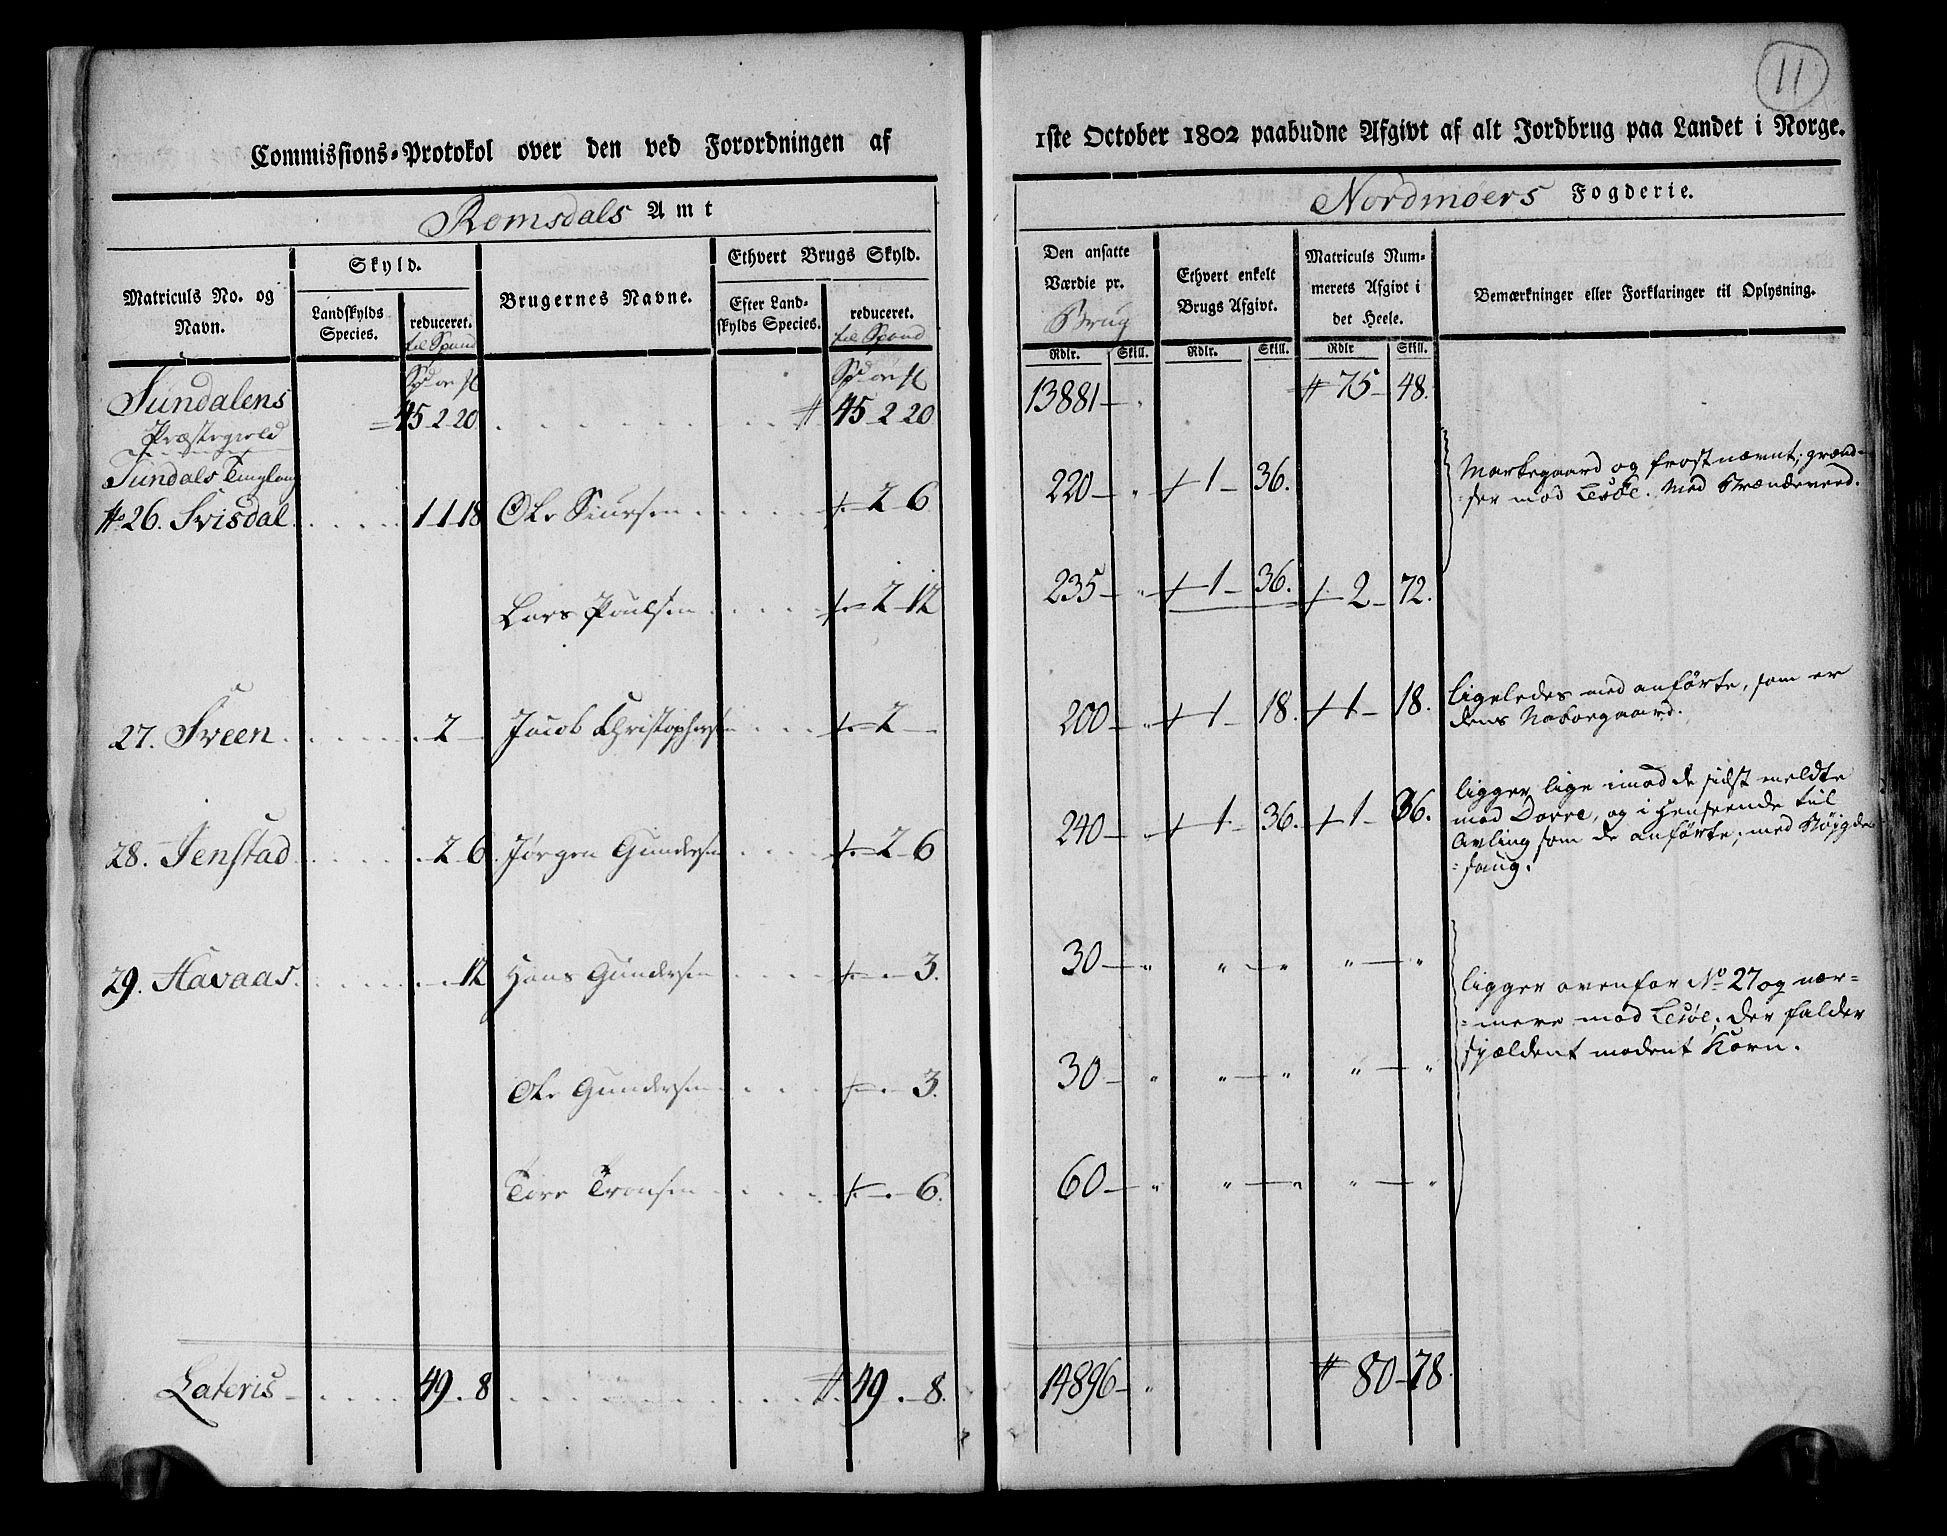 11
Commissions-Protokol over den ved Forordningen af
1ste October 1802 paabudne Afgivt af alt Jordbrug paa Landet i Norge.
Romsdals Amt
Nordmøers Fogderie.
Matriculs No. og Navn.
Skyld.
Landskylds Species.
reduceret. til Spand
Brugernes Navne.
Ethvert Brugs Skyld.
Efter Landskylds Species.
reduceret. til Spand
Den ansatte Værdie pr. Brug
Ethvert enkelt Brugs Afgivt.
Matriculs Nummerets Afgivt i det Heele.
Bemærkninger eller Forklaringer til Oplysning.
Rdlr. Skill. Rdlr. Skill. Rdlr Skill.
Sundalens 45-2-20 45-2-20 13881 75-48.
Præstegield
Sundals Tinglaug
No 26. Svisdal 1-1-18 Ole Siursen 2-6 220 1-36. Markegaard og frostnæmt; grænd-
ser mod Lesøe. Med Brændeveed.
Lars Poulsen 2-12 235 1-36. 2-72.
27. Sveen 2 Jacob Christophersen 2 200 1-18. 1-18. ligeledes med anførte, som er
dens Naboegaard.
28. Jenstad 2-6 Jørgen Gundersen 2-6 240 1-36. 1-36. ligger lige imod de sidst meldte
mod Dovre, og i Henseende til
Avling som de anførte; med
29. Havaas. 12 Hans Gundersen 3. 30 ligger ovenfor No 27 og nær-
mere mod Lesøe; der falder
sjældent modent Korn.
Ole Gundersen 3. 30
Tore Tronsen 6. 60
Lateris 49.-8 49.-8. 14896 80-78.